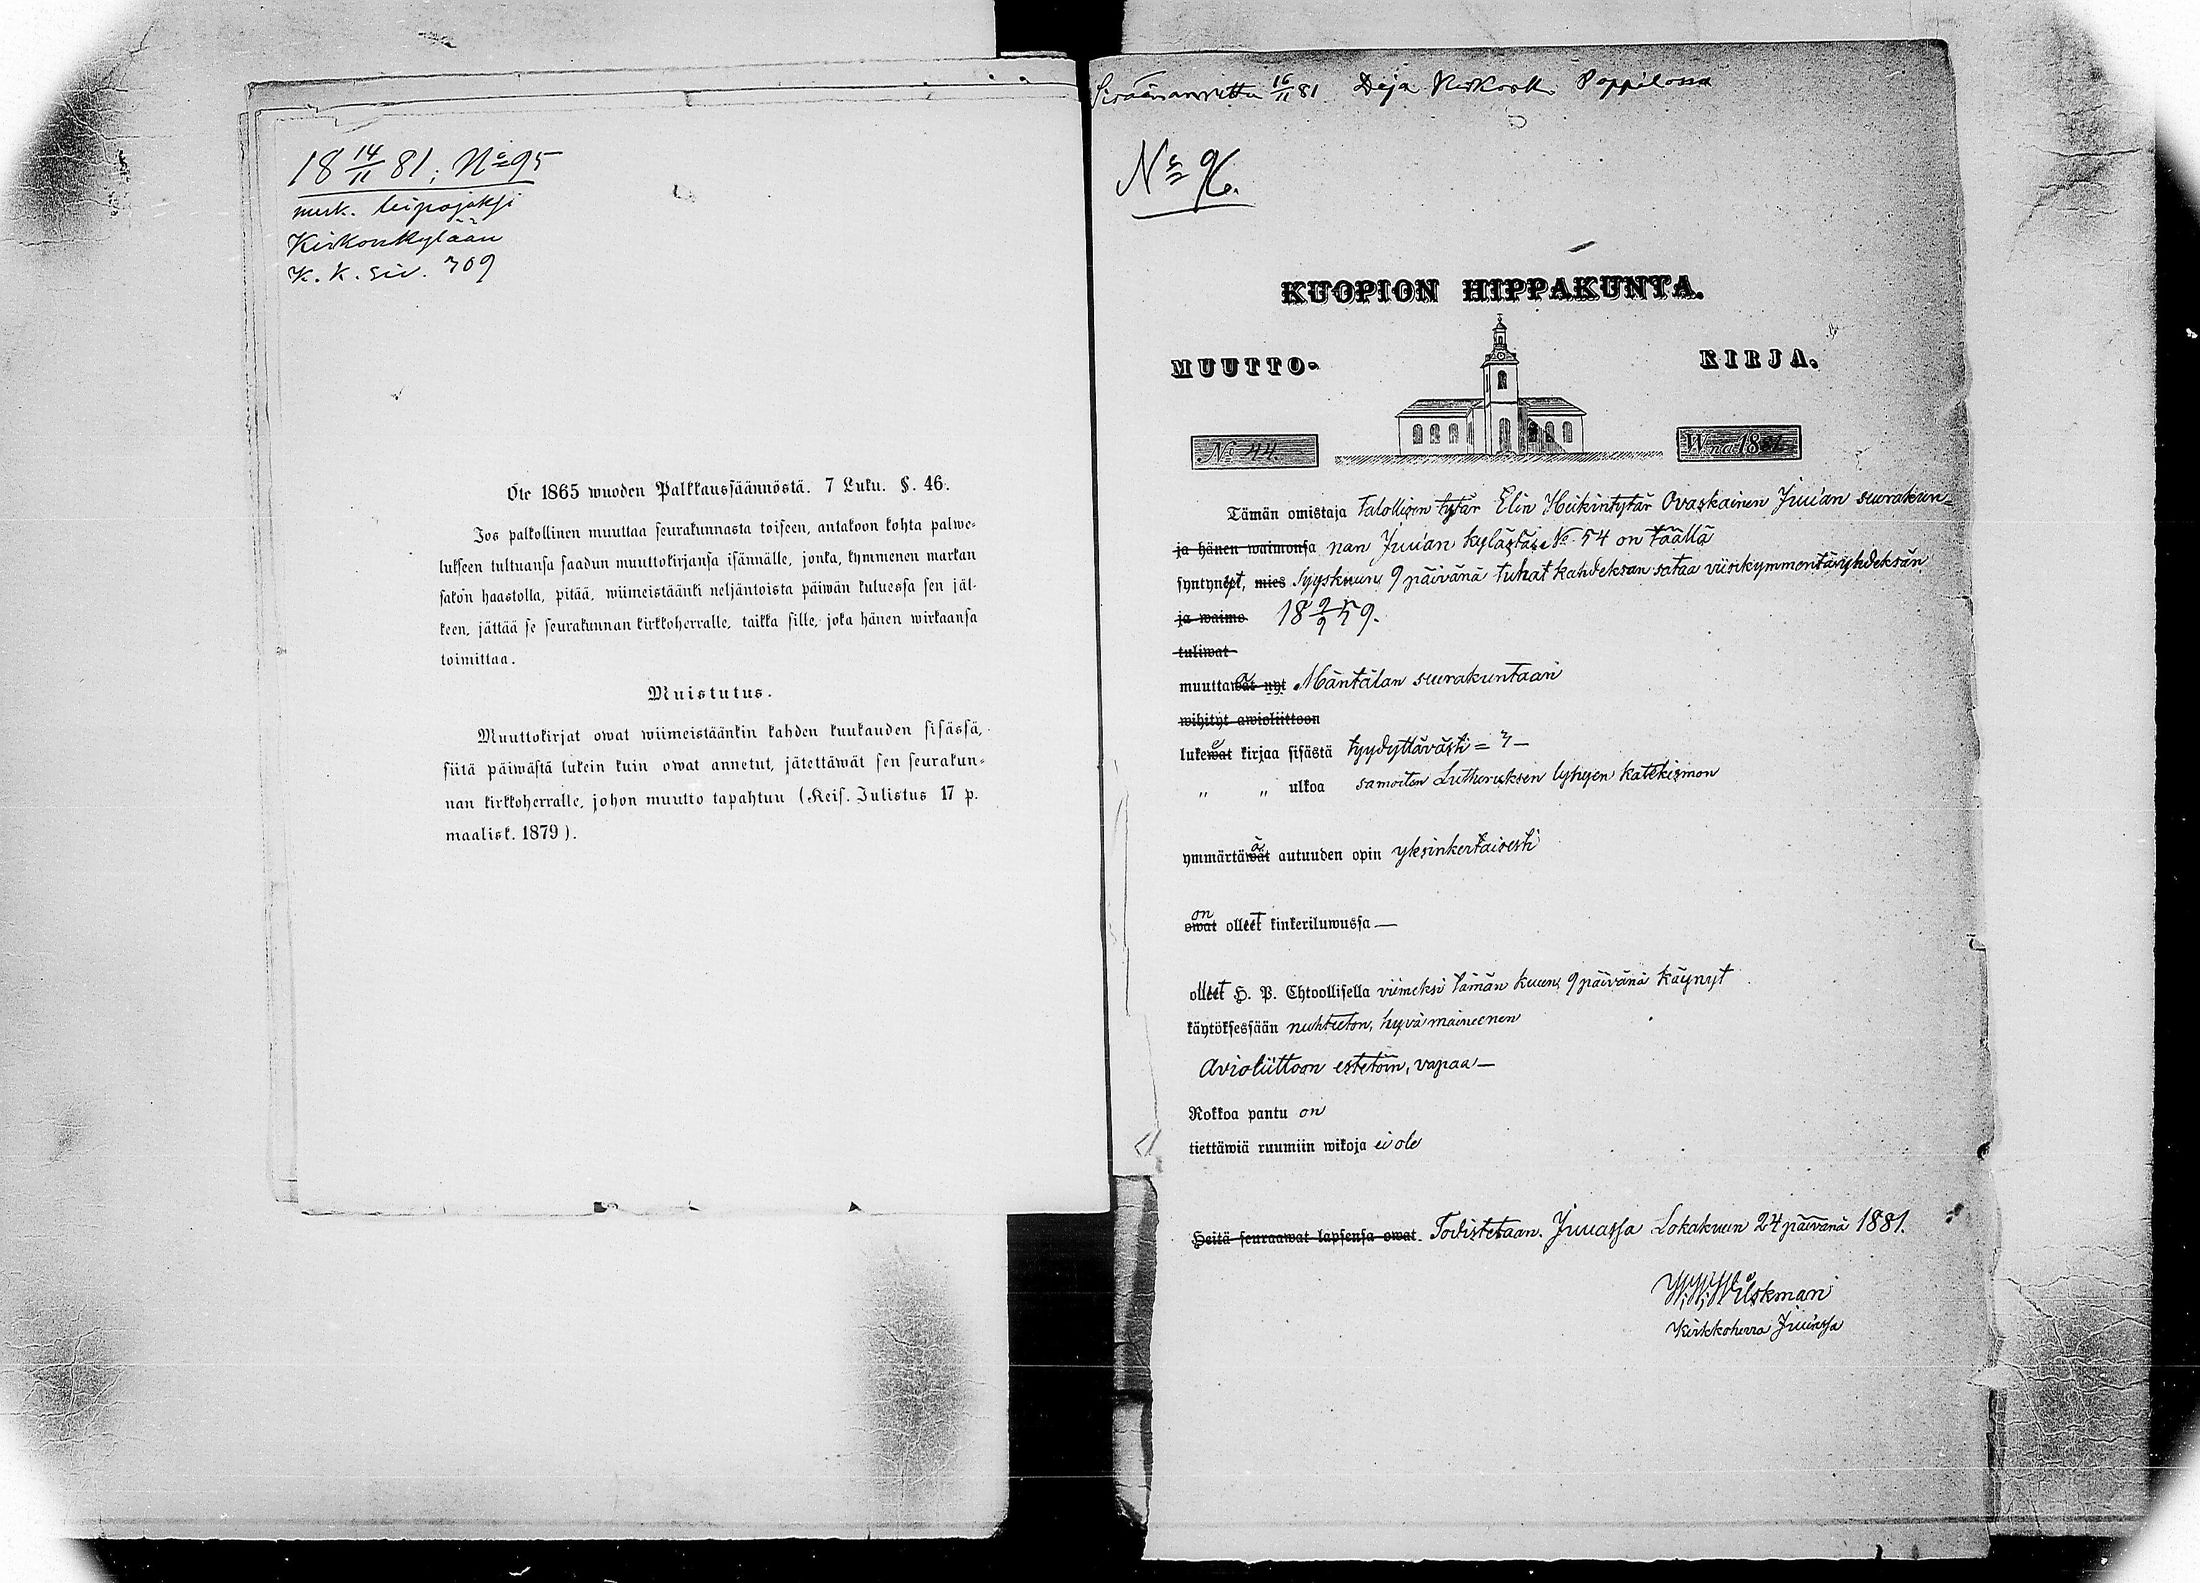 18 14/11 81; No 95
merk. leipojaksi
Kirkonkylään
K. K. siv. 309
Ote 1865 wuoden Palkkaussäännöstä. 7 Luku. §. 46.
Jos palkollinen muuttaa seurakunnasta toiseen, antakoon kohta palwe-
lukseen tultuansa saadun muuttokirjansa isännälle, jonka, kymmenen markan
sakon haastolla, pitää, wiimeistäänki neljäntoista päiwän kuluessa sen jäl-
keen, jättää se seurakunnan kirkkoherralle, taikka sille, joka hänen wirkaansa
toimittaa.
Muistutus.
Muuttokirjat owat wiimeistäänkin kahden kuukauden sisässä,
siitä päiwästä lukein kuin owat annetut, jätettäwät sen seurakun-
nan kirkkoherralle, johon muutto tapahtuu (Keis. Julistus 17 p.
maalisk. 1879).
16/11 81 Pappilassa
No 96.
KUOPION HIPPAKUNTA.
MUUTTO- KIRJA.
No 44. Wna 1881.
Tämän omistaja Talollisen tytär Elin Heikintytär Ovaskainen Juu'an seurakun-
ja hänen waimonsa nan Juu'an kylästä No 54 on täällä
syntynyt, mies Syyskuun 9 päivänä tuhat kahdeksan sataa viisikymmentäyhdeksän
ja waimo 18 9/9 59.
tuliwat
muuttawat nyt Mäntälän seurakuntaan
wihityt awioliittoon
lukewat kirjaa sisästä tyydyttävästi = 3 —
„ „ ulkoa samoiten Lutheruksen lyhyen katekismon
ymmärtäwät autuuden opin yksinkertaisesti
on
owat olleet kinkeriluwussa —
olleet H. P. Ehtoollisella viimeksi tämän kuun 9 päivänä käynyt
käytöksessään nuhteeton, hyvä maineenen
Avioliittoon estetöin, vapaa —
Rokkoa pantu on
tiettäwiä ruumiin wikoja ei ole
Heitä seuraawat lapsensa owat. Todistetaan. Juuassa Lokakuun 24 päivänä 1881.
Wilskman
Kirkkoherra Juu'assa